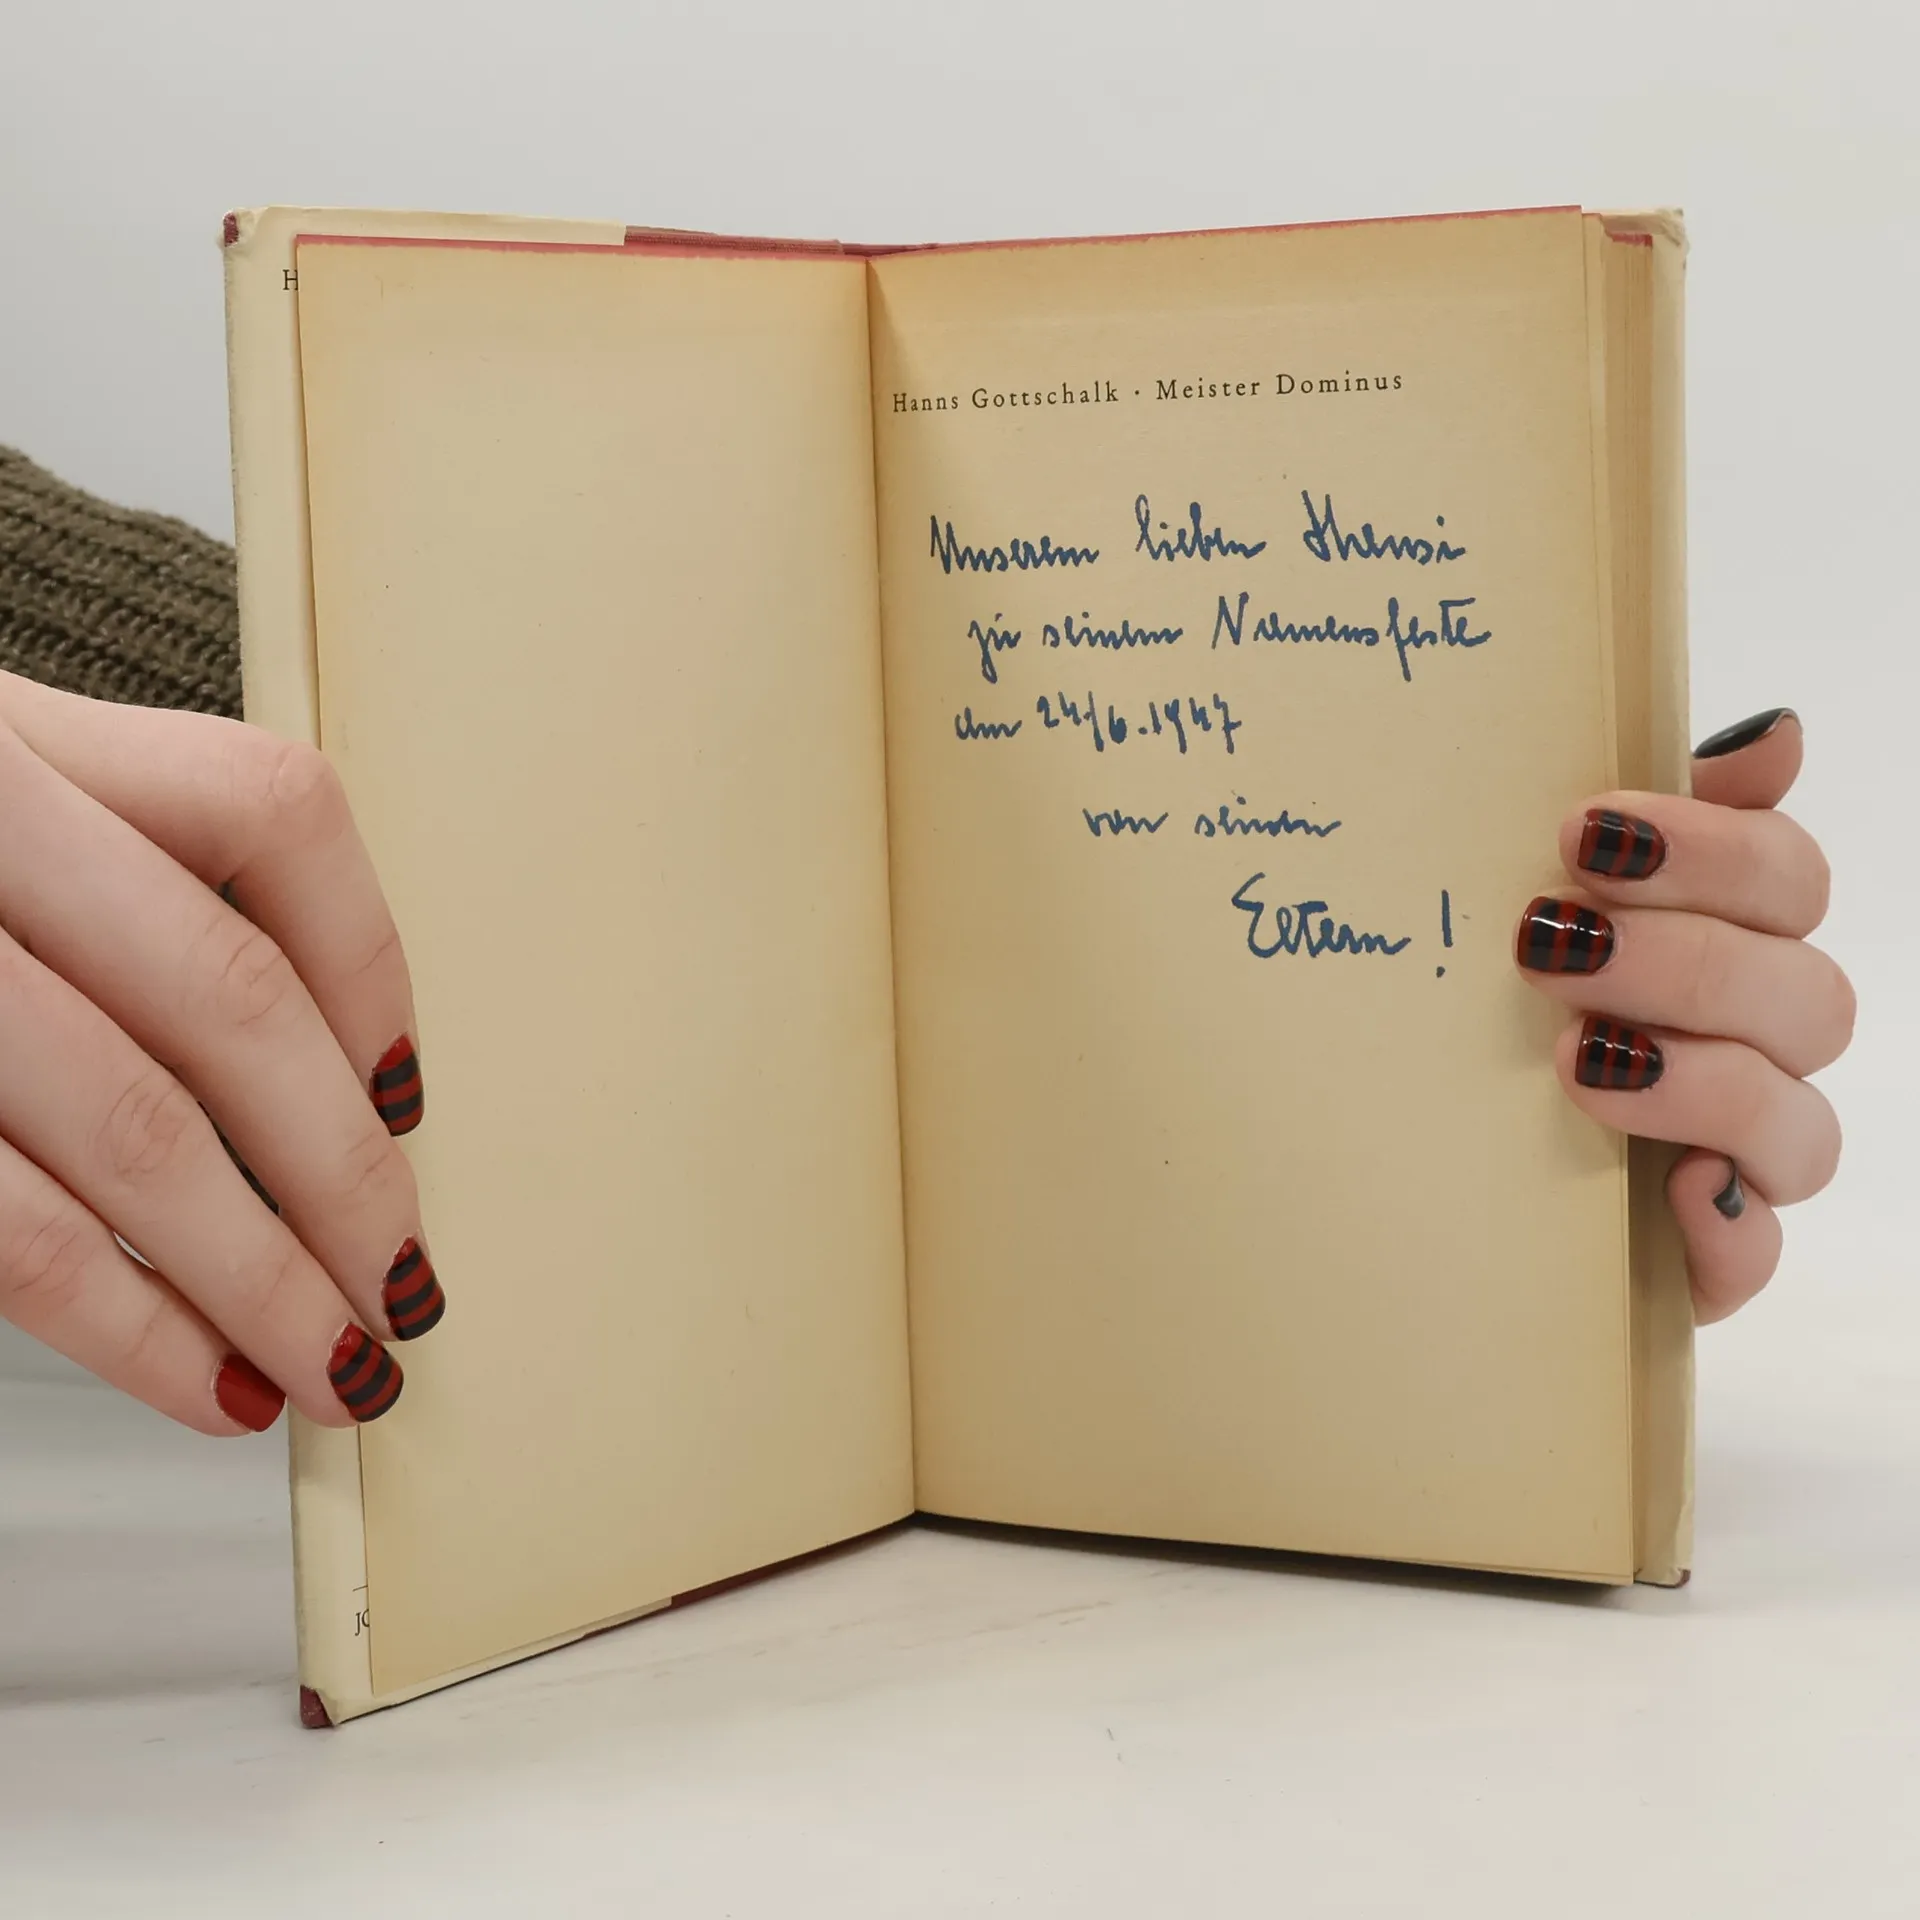 H
Hanns Gottschalk · Meister Dominus
Unserem lieben Hansi
zu seinem Namensfeste
am 24/6.1947
von seinen
Eltern !
JO